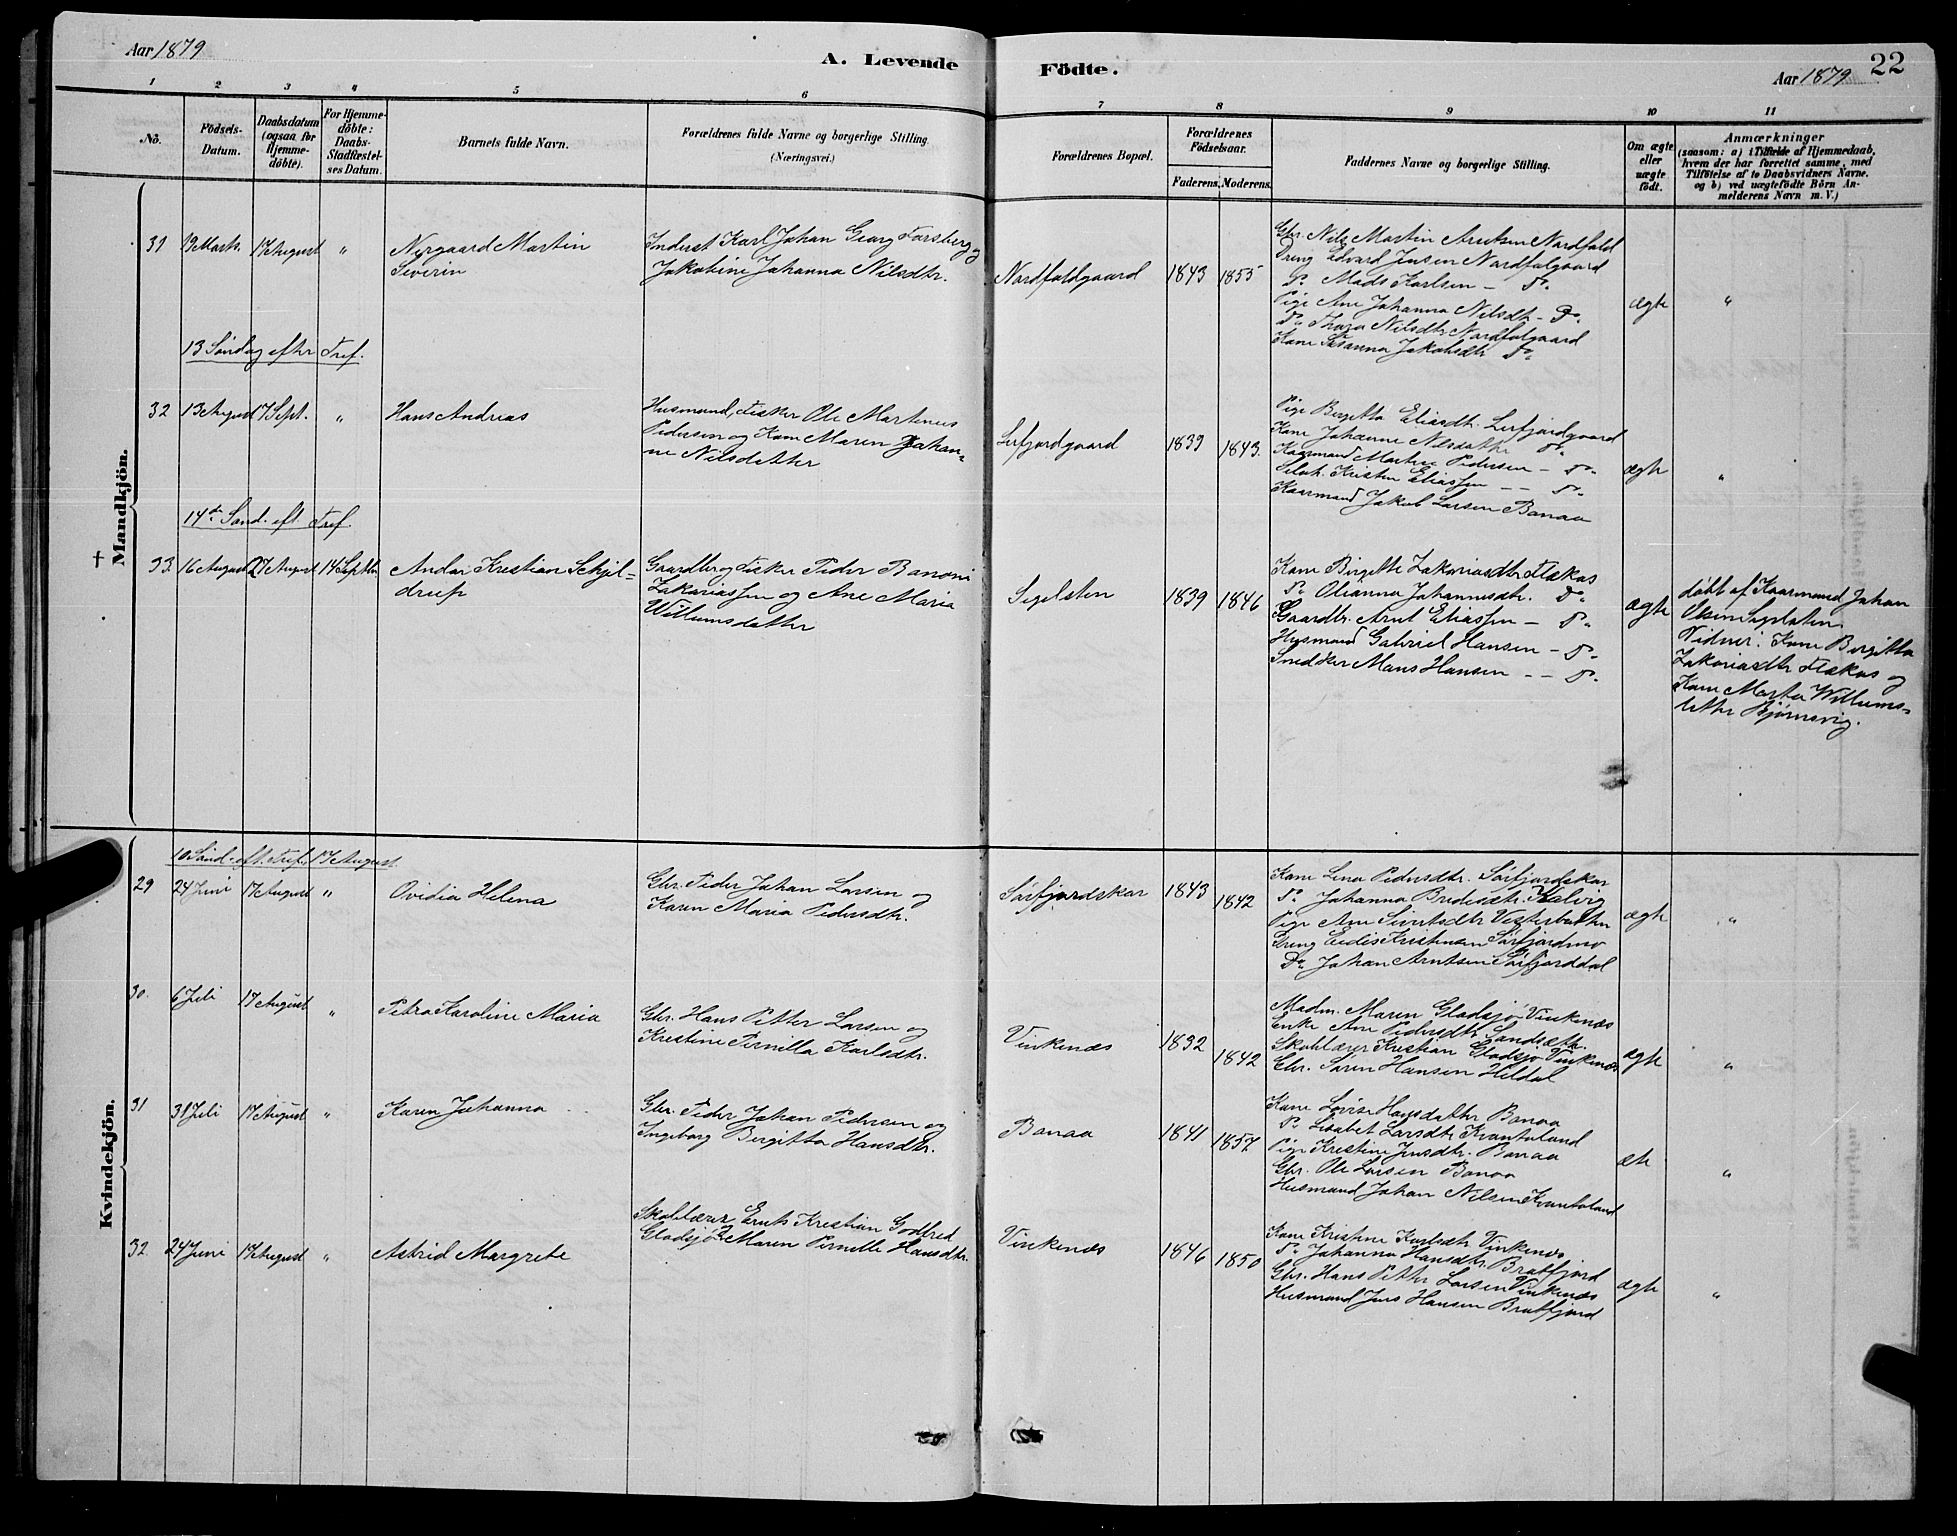 Aar 1879
A. Levende Födte.
Aar 1879
22
1 2 3 4 5 6 7 8 9 10 11
No.
Födsels-Datum.
Daabsdatum (ogsaa for Hjemme-döbte).
For Hjemme-döbte: Daabs-Stadfæstel-ses Datum.
Barnets fulde Navn.
Forældrenes fulde Navne og borgerlige Stilling.
(Næringsvei.)
Forældrenes Bopæl.
Forældrenes Födselsaar.
Faderens. Moderens.
Faddernes Navne og borgerlige Stilling.
Om ægte eller uægte födt.
Anmærkninger
(saasom: a) i Tilfælde af Hjemmedaab,
hvem der har forrettet samme, med
Tilföielse af to Daabsvidners Navne.
og b) ved uægtefödte Börn An-
melderens Navn m. V.)
Mandkjön.
31 19 Marts 17 August " Nygaard Martin
Severin
Inderst Karl Johan Georg Forsberg og
Jakobine Johanna Nilsdtr.
Nordfoldgaard 1843 1855
Gbr. Nils Martin Arntsen Nordfold
Dreng Edvard Jensen Nordfolgaard
Do Mads Karlsen - Do
Pige Ane Johanna Nilsdtr - Do.
Do Thora Nilsdtr Nordfolgaard
Kone Susanna Jakobsdtr Do
ægte "
13 Søndag efter Tref.
32 13 August 7 Sept. " Hans Andreas
Husmand, Fisker Ole Martenus
Pedersen og Kone Maren Johan=
ne Nilsdatter
Lerfjordgaard 1839 1843.
Pige Birgitta Eliasdtr. Lerfjordgaard
Kone Johanne Nilsdatter Do
Kaarmand Pedersen - Do
Selvh. Kristen Eliassen - - Do
Kaarmand Jakob Larsen Bonaa
ægte "
14de Sønd. eft Tref.
+
33. 16 August 27 August 14 Septbr Andor Kristian Schjel=
drup
Gaardbr og Fisker Peder Banoni
Zakariassen og Ane Maria
Willumsdatter
Segelsten 1839 1846
Kone Birgitte Zakariasdtr Flekas
Do Olianna Johannesdtr. Do
Gaardbr. Arnt Eliassen - Do
Husmand Gabriel Hansen - Do
Snedker Mons Hansen - - Do.
ægte
döbt af Kaarmand Johan
Olsen
Vidner: Kone Birgitta
Zakariasdtr Flekas og
Kone Marta Willums=
datter Bjørnsvig.
Kvindekjön.
10 Sønd. eft. Tref. 17 August
29 24 Juni 17 August " Ovidia Helena
Gbr. Peder Johan Larsen og
Karen Maria Pedersdtr.
Sørfjordskar 1843 1842
Kone Lina Pedersdtr. Sørfjordskar
Do Johanna
Pige Ane Sivertsdtr Vesterbotten
Dreng Kristensen Sørfjordmo
Do Johan Arntsen Sørfjorddal
ægte "
30. 6 Juli 17 August " Petra Karoline Maria
Gbr. Hans Petter Larsen og
Kristine Pernilla Karlsdtr.
Vinkenes 1832 1842
Madm. Maren Gladsjø Vinkenes
Enke Ane Pedersdtr
Skolelærer Kristian Gladsjø Vinkenes
Gbr. Søren Hansen Hildal
ægte "
31 31 Juli 17 August " Karen Johanna
Gbr. Peder Johan Pedersen og
Ingeborg Birgitta Hansdtr.
Bonaa 1841 1857
Kone Lovise Hansdatter Bonaa
Do Lisabet Larsdtr Kvantoland
Pige Kristine Jensdtr. Bonaa
Gbr. Ole Larsen Bonaa
Husmand Johan Nilsen Kvantoland
æte "
32 24 Juni 17 August " Astrid Margrete
Skolelærer Ernts Kristian Godtfred
Gladsjø og Maren Pernille Hansdtr.
Vinkenes 1846 1850
Kone Kristine Karlsdtr Vinkenes
Do Johanna Hansdtr. Bratfjord
Gbr. Hans Petter Larsen Vinkenes
Husmand Jens Hansen Bratfjord
ægte "